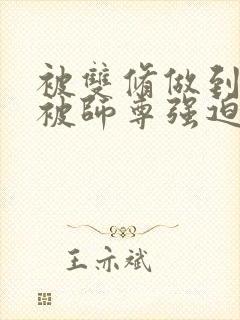 被雙脩做到
被師尊强迫
王亦斌